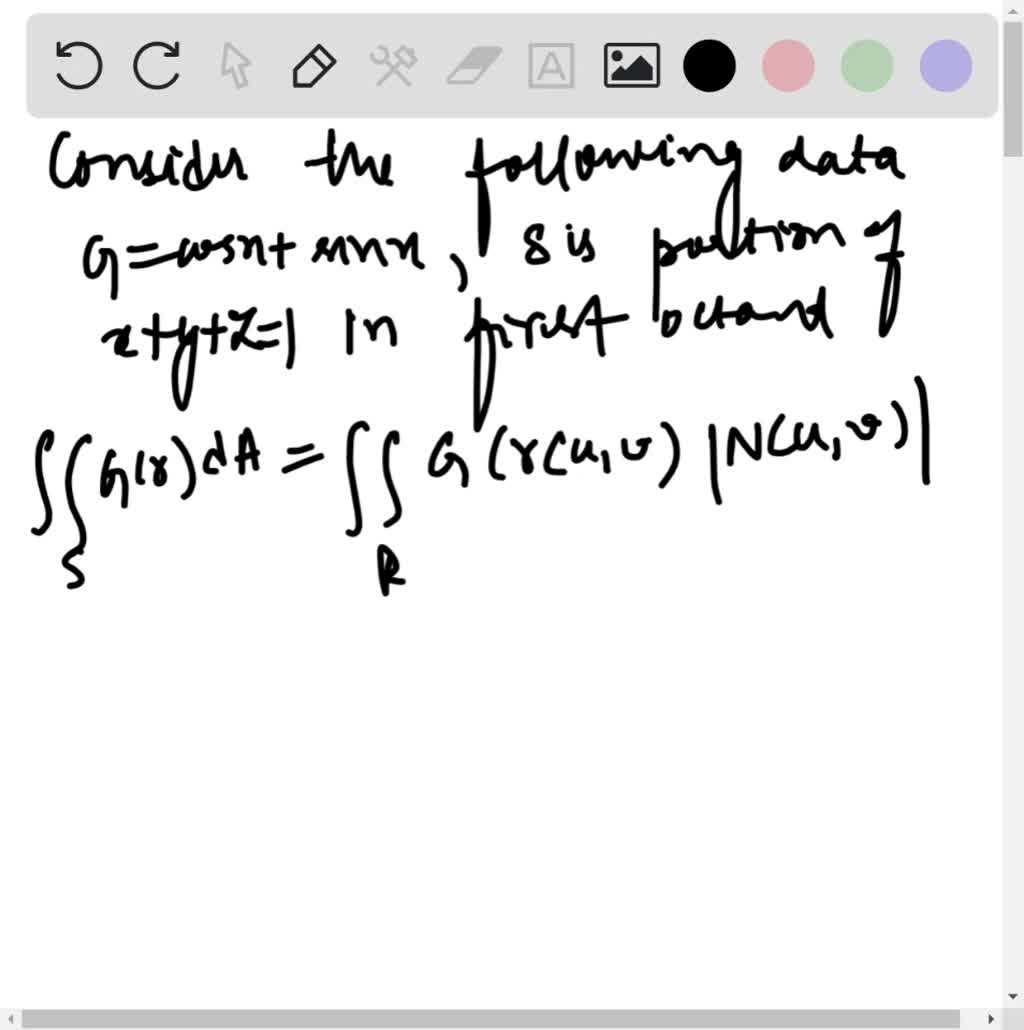 Consider the following data
G=cosx+sinx, S is portion of
x+y+z=1 in first octand
∫∫ G(r)dA = ∫∫ G(r(u,v) |N(u,v)|
S R